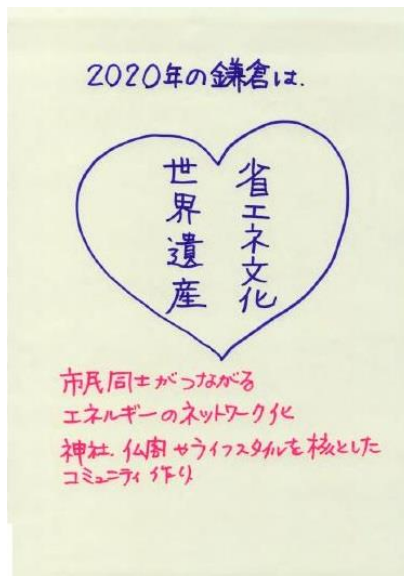 2020年の鎌倉は.
省エネ文化
世界遺産
市民同士がつながる
エネルギーのネットワーク化
神社.仏閣やライフスタイルを核とした
コミュニティ作り